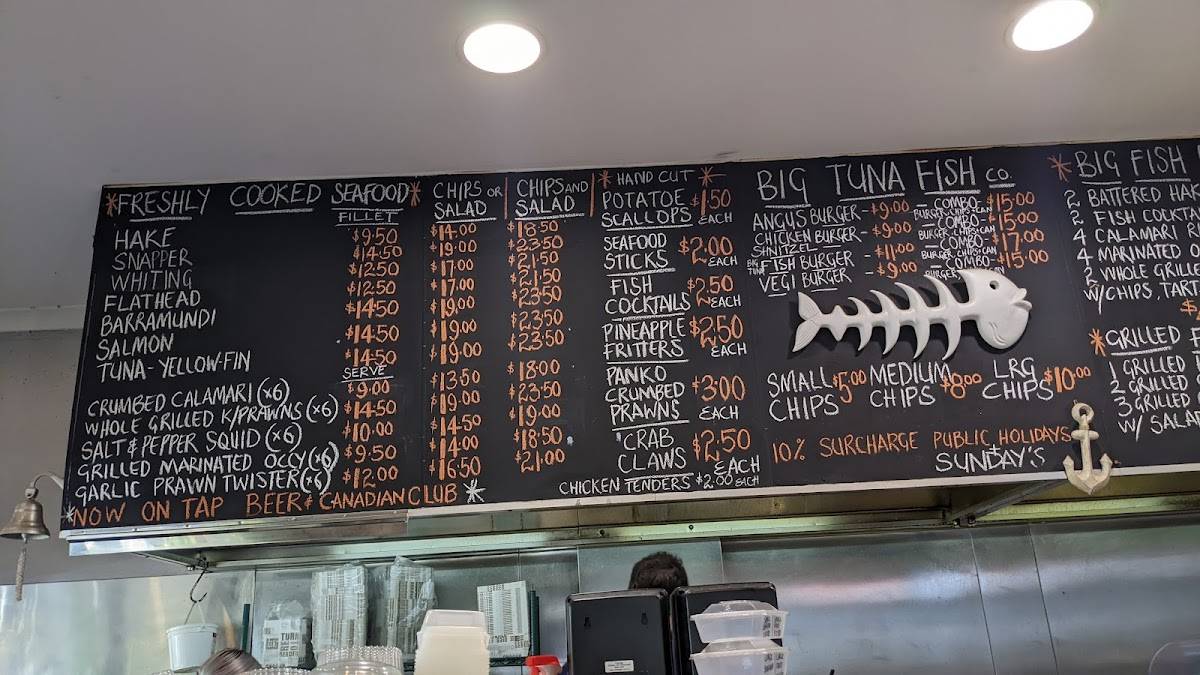 *FRESHLY COOKED SEAFOOD*
FILLET
CHIPS OR SALAD
CHIPS AND SALAD
HAKE $9.50 $14.00 $18.50
SNAPPER $14.50 $19.00 $23.50
WHITING $12.50 $17.00 $21.50
FLATHEAD $12.50 $17.00 $21.50
BARRAMUNDI $14.50 $19.00 $23.50
SALMON $14.50 $19.00 $23.50
TUNA-YELLOW-FIN $14.50 $19.00 $23.50
SERVE
CRUMBED CALAMARI (x6) $9.00 $13.50 $18.00
WHOLE GRILLED K/PRAWNS (x6) $14.50 $19.00 $23.50
SALT & PEPPER SQUID (x6) $10.00 $14.50 $19.00
GRILLED MARINATED OCCY (x6) $9.50 $14.00 $18.50
GARLIC PRAWN TWISTER (x6) $12.00 $16.50 $21.00
*NOW ON TAP BEER & CANADIAN CLUB *
* HAND CUT *
POTATOE SCALLOPS $1.50 EACH
SEAFOOD STICKS $2.00 EACH
FISH COCKTAILS $2.50 EACH
PINEAPPLE FRITTERS $2.50 EACH
PANKO CRUMBED PRAWNS $3.00 EACH
CRAB CLAWS $2.50 EACH
CHICKEN TENDERS $2.00 EACH
BIG TUNA FISH CO.
ANGUS BURGER - $9.00 - COMBO - $15.00
BURGER, CHIPS, CAN
CHICKEN BURGER - $9.00 - COMBO - $15.00
SCHNITZEL
BURGER CHIPS CAN
BIG TUNA FISH BURGER - $11.00 - COMBO - $17.00
BURGER CHIPS CAN
VEGI BURGER - $9.00 - COMBO - $15.00
BURGER
SMALL CHIPS $5.00
MEDIUM CHIPS $8.00
LRG CHIPS $10.00
10% SURCHARGE PUBLIC HOLIDAYS + SUNDAY'S
*BIG FISH
2 BATTERED
2 FISH
4 CALAMARI
4 MARINATED
2 WHOLE
W/CHIPS,
*GRILLED
1 GRILLED
2 GRILLED
3 GRILLED
W/